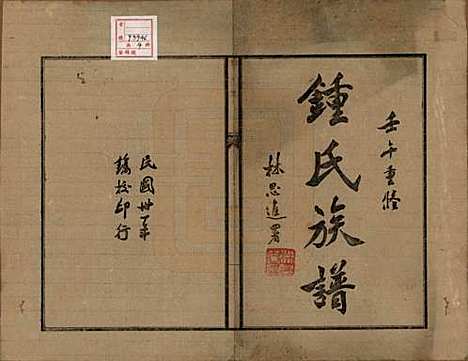 壬午重修
鍾氏族譜
林思進署
民國卅一年
校印行